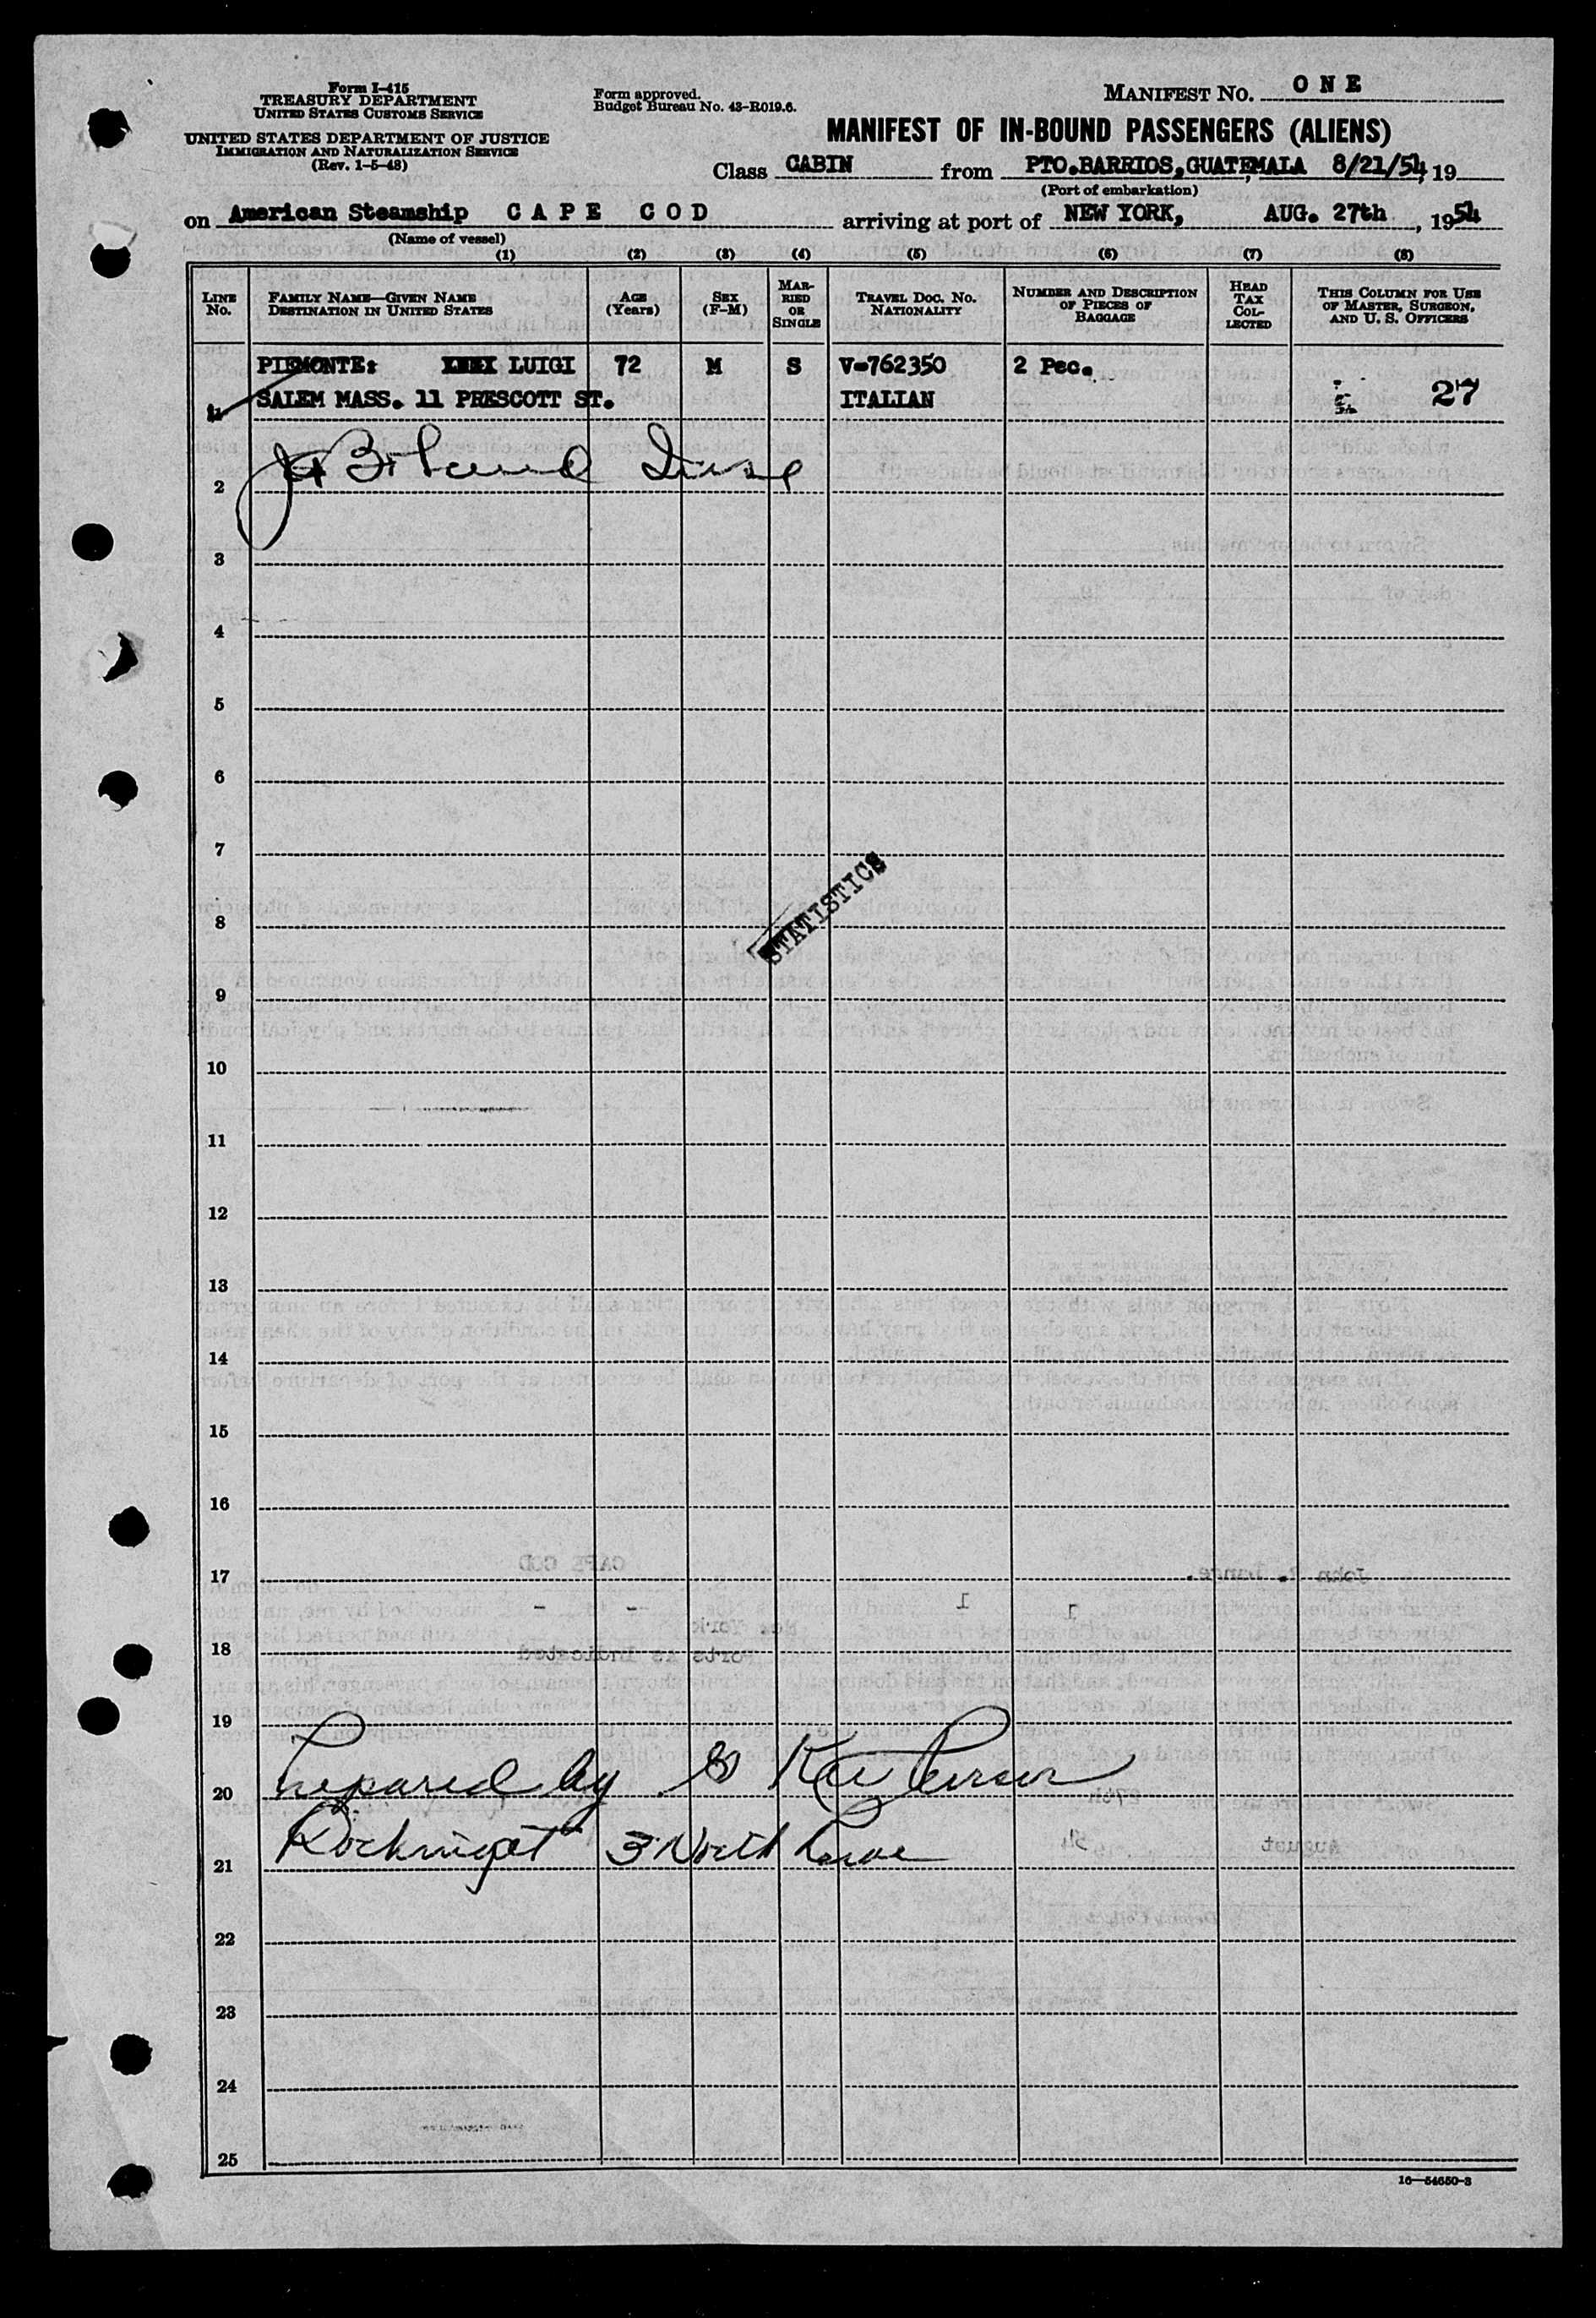 Form I-415
TREASURY DEPARTMENT
UNITED STATES CUSTOMS SERVICE
UNITED STATES DEPARTMENT OF JUSTICE
IMMIGRATION AND NATURALIZATION SERVICE
(Rev. 1-5-48)
Form approved.
Budget Bureau No. 43-R019.6.
MANIFEST NO. ONE
MANIFEST OF IN-BOUND PASSENGERS (ALIENS)
Class CABIN from PTO.BARRIOS,GUATEMALA 8/21/54, 19
(Port of embarkation)
on American Steamship CAPE COD arriving at port of NEW YORK, AUG. 27th, 1954
(Name of vessel)
(1) (2) (3) (4) (5) (6) (7) (8)
LINE No. FAMILY NAME—GIVEN NAME DESTINATION IN UNITED STATES AGE (Years) SEX (F-M) MARRIED OR SINGLE TRAVEL DOC. NO. NATIONALITY NUMBER AND DESCRIPTION OF PIECES OF BAGGAGE HEAD TAX COLLECTED THIS COLUMN FOR USE OF MASTER, SURGEON, AND U. S. OFFICERS
PIEMONTE: LUIGI 72 M S V-762350 2 Pec.
1 SALEM MASS. 11 PRESCOTT ST. ITALIAN 27
2
3
4
5
6
7
STATISTICS
8
9
10
11
12
13
14
15
16
17
18
19
20 Prepared by
21 3 North
22
23
24
25
16—54650-3